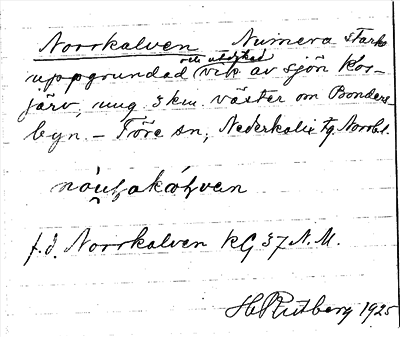 Norrkalven Numera starkt
uppgrundad och utdikad vik av sjön Kor-
järv, ung 3 km. väster om Bonders-
byn. – Töre sn; Nederkalix tg. Norrb l.
f.d. Norrkalven KG 37 N.M.
H Rutberg 1925